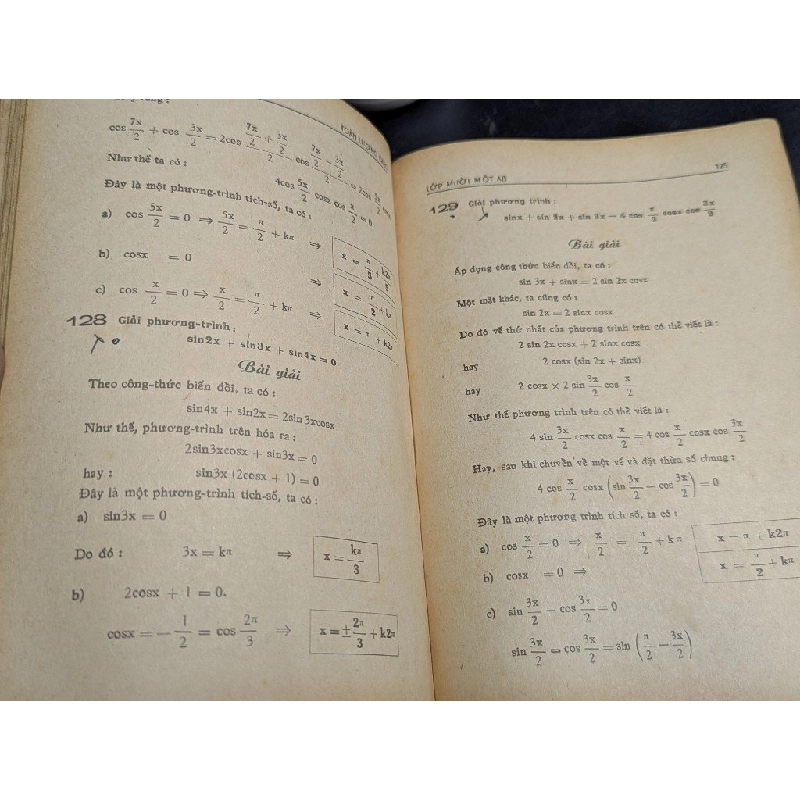 cos 7x/2 + cos 3x/2 = 2cos
Như thế ta có :
4cos 5x/2 cosx cos x/2 = 0
Đây là một phương-trình tích-số, ta có :
a) cos 5x/2 = 0 ⇒ 5x/2 = π/2 + kπ ⇒
b) cosx = 0 ⇒
c) cos x/2 = 0 ⇒ x/2 = π/2 + kπ ⇒
128 Giải phương-trình :
sin2x + sin3x + sin4x = 0
Bài giải
Theo công-thức biến đổi, ta có :
sin4x + sin2x = 2sin3xcosx
Như thế, phương-trình trên hóa ra :
2sin3xcosx + sin3x = 0
hay : sin3x (2cosx + 1) = 0
Đây là một phương-trình tích-số, ta có :
a) sin3x = 0
Do đó : 3x = kπ ⇒ x = kπ/3
b) 2cosx + 1 = 0.
cosx = − 1/2 = cos 2π/3 ⇒ x = ± 2π/3 + k2π
LỚP MƯỜI MỘT AB 125
129 Giải phương trình :
sinx + sin 2x + sin 3x = 4 cos x/2 cosx cos 3x/2
Bài giải
Áp dụng công thức biến đổi, ta có :
sin 3x + sinx = 2 sin 2x cosx
Một mặt khác, ta cũng có :
sin 2x = 2 sinx cosx
Do đó vế thứ nhất của phương trình trên có thể viết là :
2 sin 2x cosx + 2 sinx cosx
hay 2 cosx (sin 2x + sinx)
hay 2 cosx × 2 sin 3x/2 cos x/2
Như thế phương trình trên có thể viết là :
4 sin 3x/2 cosx cos x/2 = 4 cos x/2 cosx cos 3x/2
Hay, sau khi chuyển về một vế và đặt thừa số chung :
4 cos x/2 cosx (sin 3x/2 − cos 3x/2) = 0
Đây là một phương trình tích số, ta có :
a) cos x/2 = 0 ⇒ x/2 = π/2 + kπ x = π + k2π
b) cosx = 0 ⇒ x = π/2 + kπ
c) sin 3x/2 − cos 3x/2 = 0
sin 3x/2 = cos 3x/2 = sin (π/2 − 3x/2)